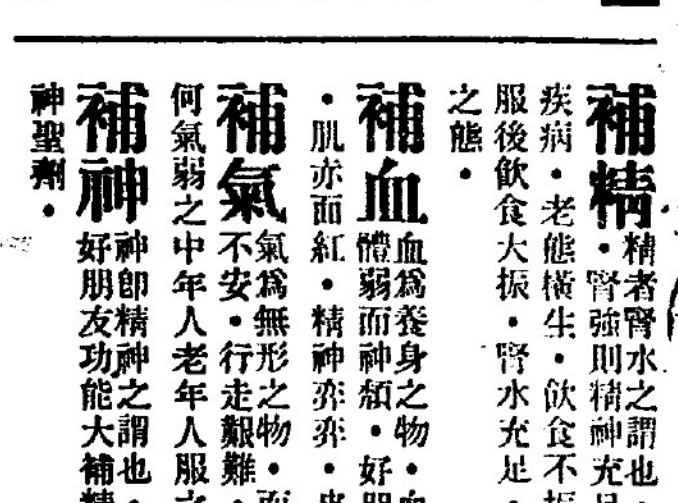 補精
精者腎水之謂也
・腎強則精神充足
疾病・老態橫生・飲食不振
服後飲食大振・腎水充足・
之態・
補血
血為養身之物・血
體弱而神頹・好朋
・肌亦面紅・精神弈弈・皮
補氣
氣為無形之物・而
不安・行走艱難・
何氣弱之中年人老年人服之
補神
神即精神之謂也・
好朋友功能大補精
神聖劑・